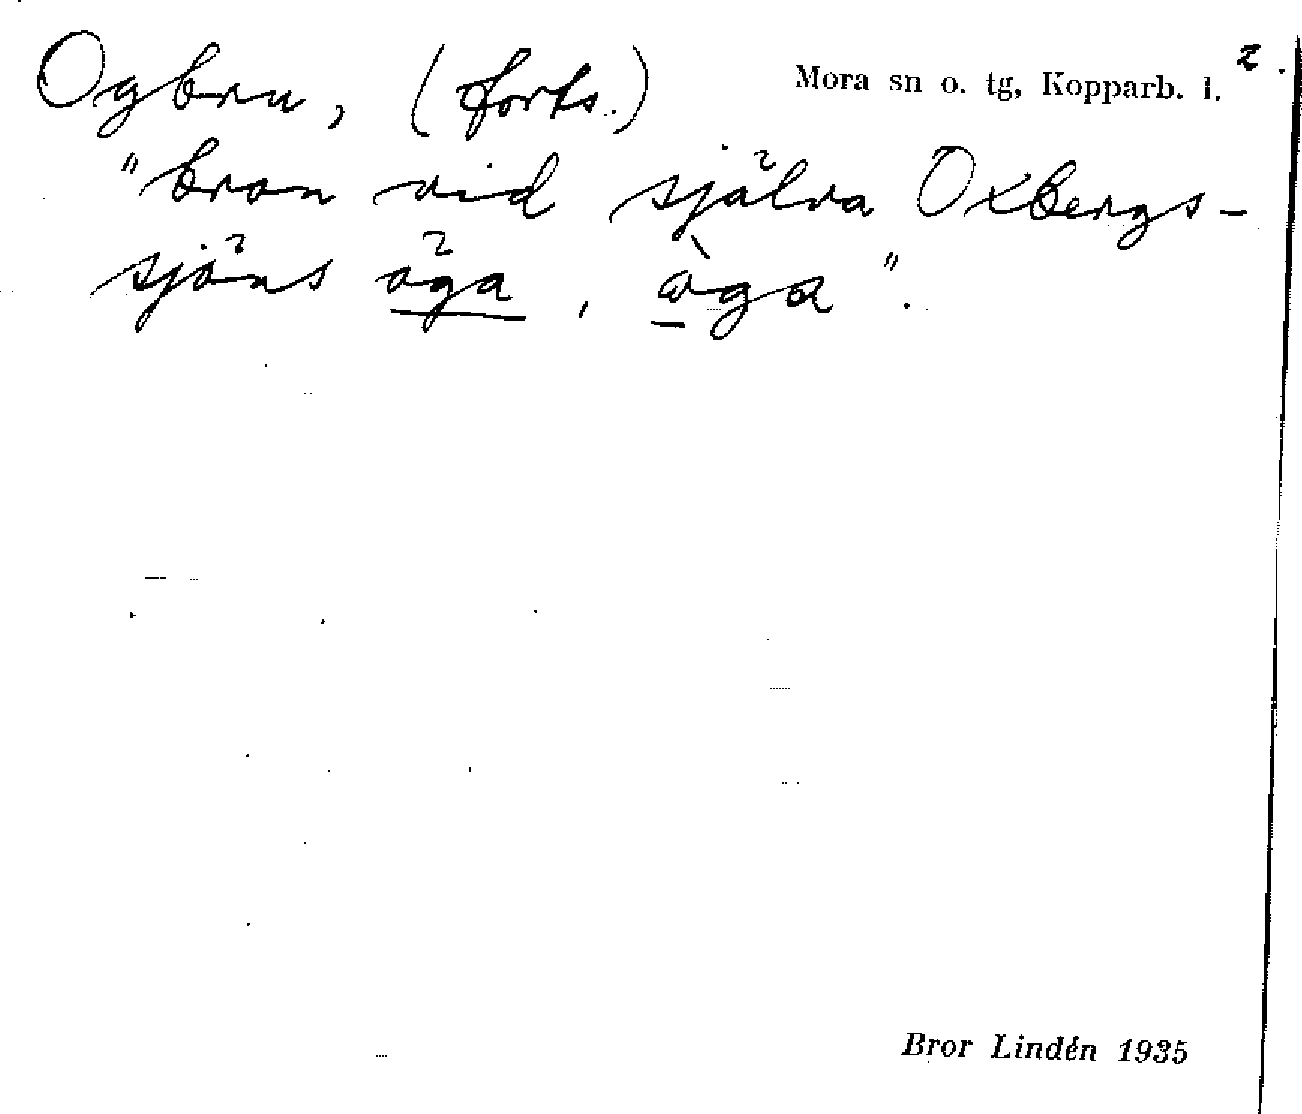 Ogbru, (forts.)
Mora sn o. tg, Kopparb. l. 2.
"bron vid själva Oxbergs-
sjöns öga, òga".
Bror Lindén 1935